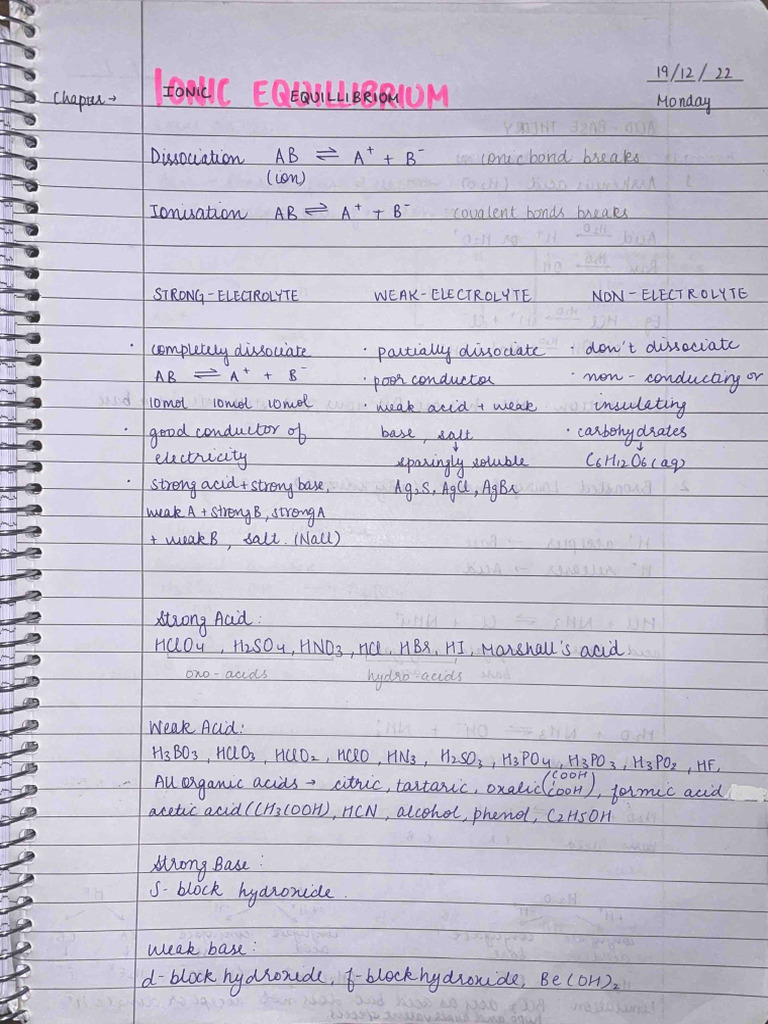 19/12/22
Chapter → IONIC EQUILLIBRIUM
Monday
Dissociation AB ⇌ A⁺ + B⁻ ionic bond breaks
(ion)
Ionisation AB ⇌ A⁺ + B⁻ covalent bonds breaks
STRONG-ELECTROLYTE WEAK-ELECTROLYTE NON-ELECTROLYTE
· completely dissociate · partially dissociate · don't dissociate
AB ⇌ A⁺ + B⁻ · poor conductor · non-conducting or
10mol 10mol 10mol · weak acid + weak insulating
· good conductor of base, salt · carbohydrates
electricity sparingly soluble C6H12O6(aq)
· strong acid + strong base, Ag2S, AgCl, AgBr
weak A + strong B, strong A
+ weak B, salt. (NaCl)
Strong Acid:
HClO4, H2SO4, HNO3, HCl, HBr, HI, Marshall's acid
oxo-acids hydro-acids
Weak Acid:
H3BO3, HClO3, HClO2, HClO, HN3, H2SO3, H3PO4, H3PO3, H3PO2, HF,
All organic acids → citric, tartaric, oxalic (COOH COOH), formic acid
acetic acid (CH3COOH), HCN, alcohol, phenol, C2H5OH
Strong Base:
S-block hydroxide.
Weak base:
d-block hydroxide, f-block hydroxide, Be(OH)₂